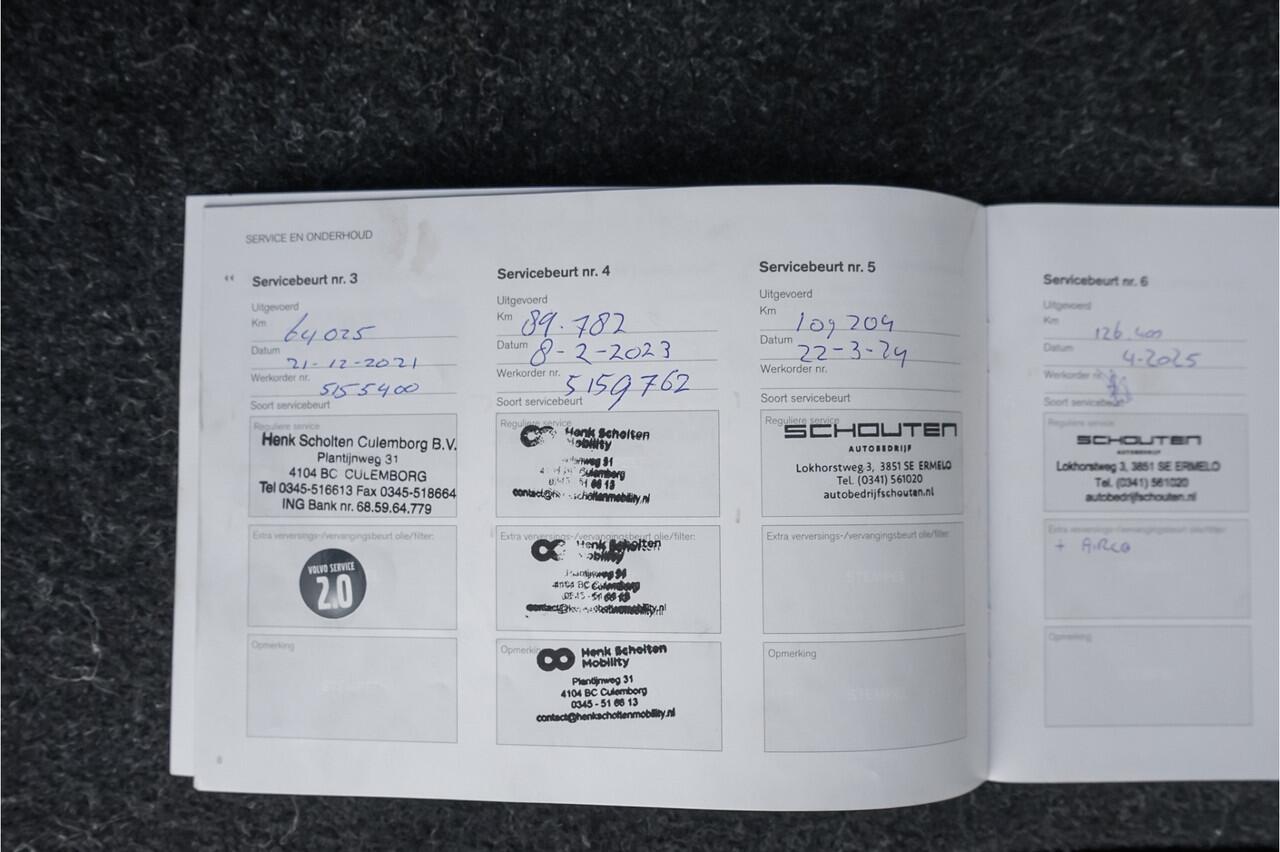 SERVICE EN ONDERHOUD
‹‹ Servicebeurt nr. 3
Uitgevoerd
Km 64025
Datum 21-12-2021
Werkorder nr. 5155400
Soort servicebeurt
Reguliere service
Henk Scholten Culemborg B.V.
Plantijnweg 31
4104 BC CULEMBORG
Tel 0345-516613 Fax 0345-518664
ING Bank nr. 68.59.64.779
Extra verversings-/vervangingsbeurt olie/filter:
VOLVO SERVICE
2.0
Opmerking
8
Servicebeurt nr. 4
Uitgevoerd
Km 89.782
Datum 8-2-2023
Werkorder nr. 5159762
Soort servicebeurt
Reguliere service
Henk Scholten
Mobility
Extra verversings-/vervangingsbeurt olie/filter:
Henk Scholten
Mobility
Plantijnweg 31
4104 BC Culemborg
Opmerking
Henk Scholten
Mobility
Plantijnweg 31
4104 BC Culemborg
0345 - 51 66 13
contact@henkscholtenmobility.nl
Servicebeurt nr. 5
Uitgevoerd
Km 109204
Datum 22-3-24
Werkorder nr.
Soort servicebeurt
Reguliere service
SCHOUTEN
AUTOBEDRIJF
Lokhorstweg 3, 3851 SE ERMELO
Tel. (0341) 561020
autobedrijfschouten.nl
Extra verversings-/vervangingsbeurt olie/filter:
Opmerking
Servicebeurt nr. 6
Uitgevoerd
Km 126.400
Datum 4-2025
Werkorder nr.
Soort servicebeurt
Reguliere service
SCHOUTEN
AUTOBEDRIJF
Lokhorstweg 3, 3851 SE ERMELO
Tel. (0341) 561020
autobedrijfschouten.nl
Extra verversings-/vervangingsbeurt olie/filter:
+ AIRCO
Opmerking